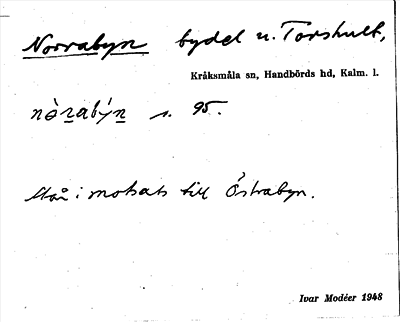 Norrabyn bydel u. Torshult,
Kråksmåla sn, Handbörds hd, Kalm. l.
nòrabýn s. 95.
Står i motsats till Östrabyn.
Ivar Modéer 1948